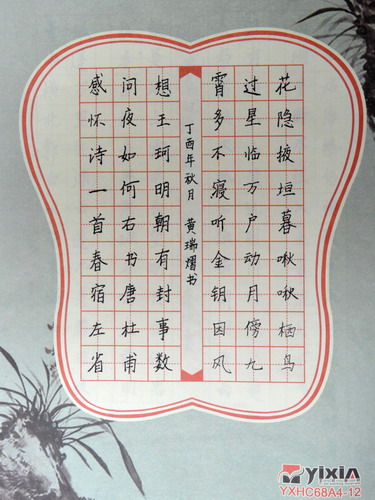 花隐掖垣暮啾啾栖鸟
过星临万户动月傍九
霄多不寝听金钥因风
想王珂明朝有封事数
问夜如何右书唐杜甫
感怀诗一首春宿左省
丁酉年秋月 黄瑞熠书
YIXIA
YXHC68A4-12